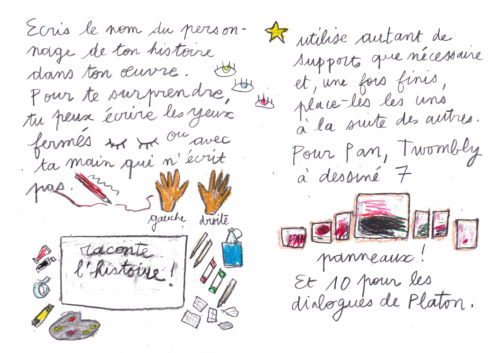 Ecris le nom du person-
nage de ton histoire
dans ton œuvre.
Pour te surprendre,
tu peux écrire les yeux
fermés ou avec
ta main qui n'écrit
pas.
gauche droite
raconte
l'histoire !
utilise autant de
supports que nécessaire
et, une fois finis,
place-les les uns
à la suite des autres.
Pour Pan, Twombly
à dessiné 7
panneaux !
Et 10 pour les
dialogues de Platon.